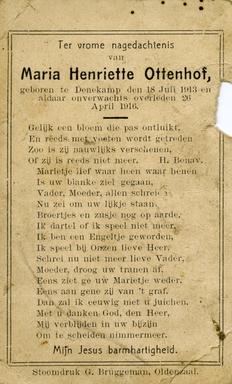 Ter vrome nagedachtenis
van
Maria Henriette Ottenhof,
geboren te Denekamp den 18 Juli 1913 en
aldaar onverwachts overleden 26
April 1916.
Gelijk een bloem die pas ontluikt,
En reeds met voeten wordt getreden
Zoo is zij nauwlijks verschenen,
Of zij is reeds niet meer. H. Benav.
Marietje lief waar heen waar henen
Is uw blanke ziel gegaan,
Vader, Moeder, allen schrei
Nu zei om uw lijkje staan,
Broertjes en zusje nog op aarde,
Ik dartel of ik speel niet meer,
Ik ben een Engeltje geworden,
Ik speel bij Onzen lieve Heer,
Schrei nu niet meer lieve Vader,
Moeder, droog uw tranen af,
Eens ziet ge uw Marietje weder,
Eens aan gene zij van 't graf.
Dan zal ik eeuwig met u juichen,
Met u danken God, den Heer,
Mij verblijden in uw bijzijn
Om te scheiden nimmermeer.
Mijn Jesus barmhartigheid.
Stoomdruk G. Bruggeman, Oldenzaal.